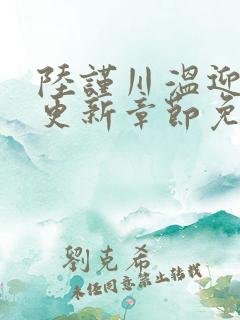 陸謹川溫迎
更新章節免
劉克希
未经同意禁止转载